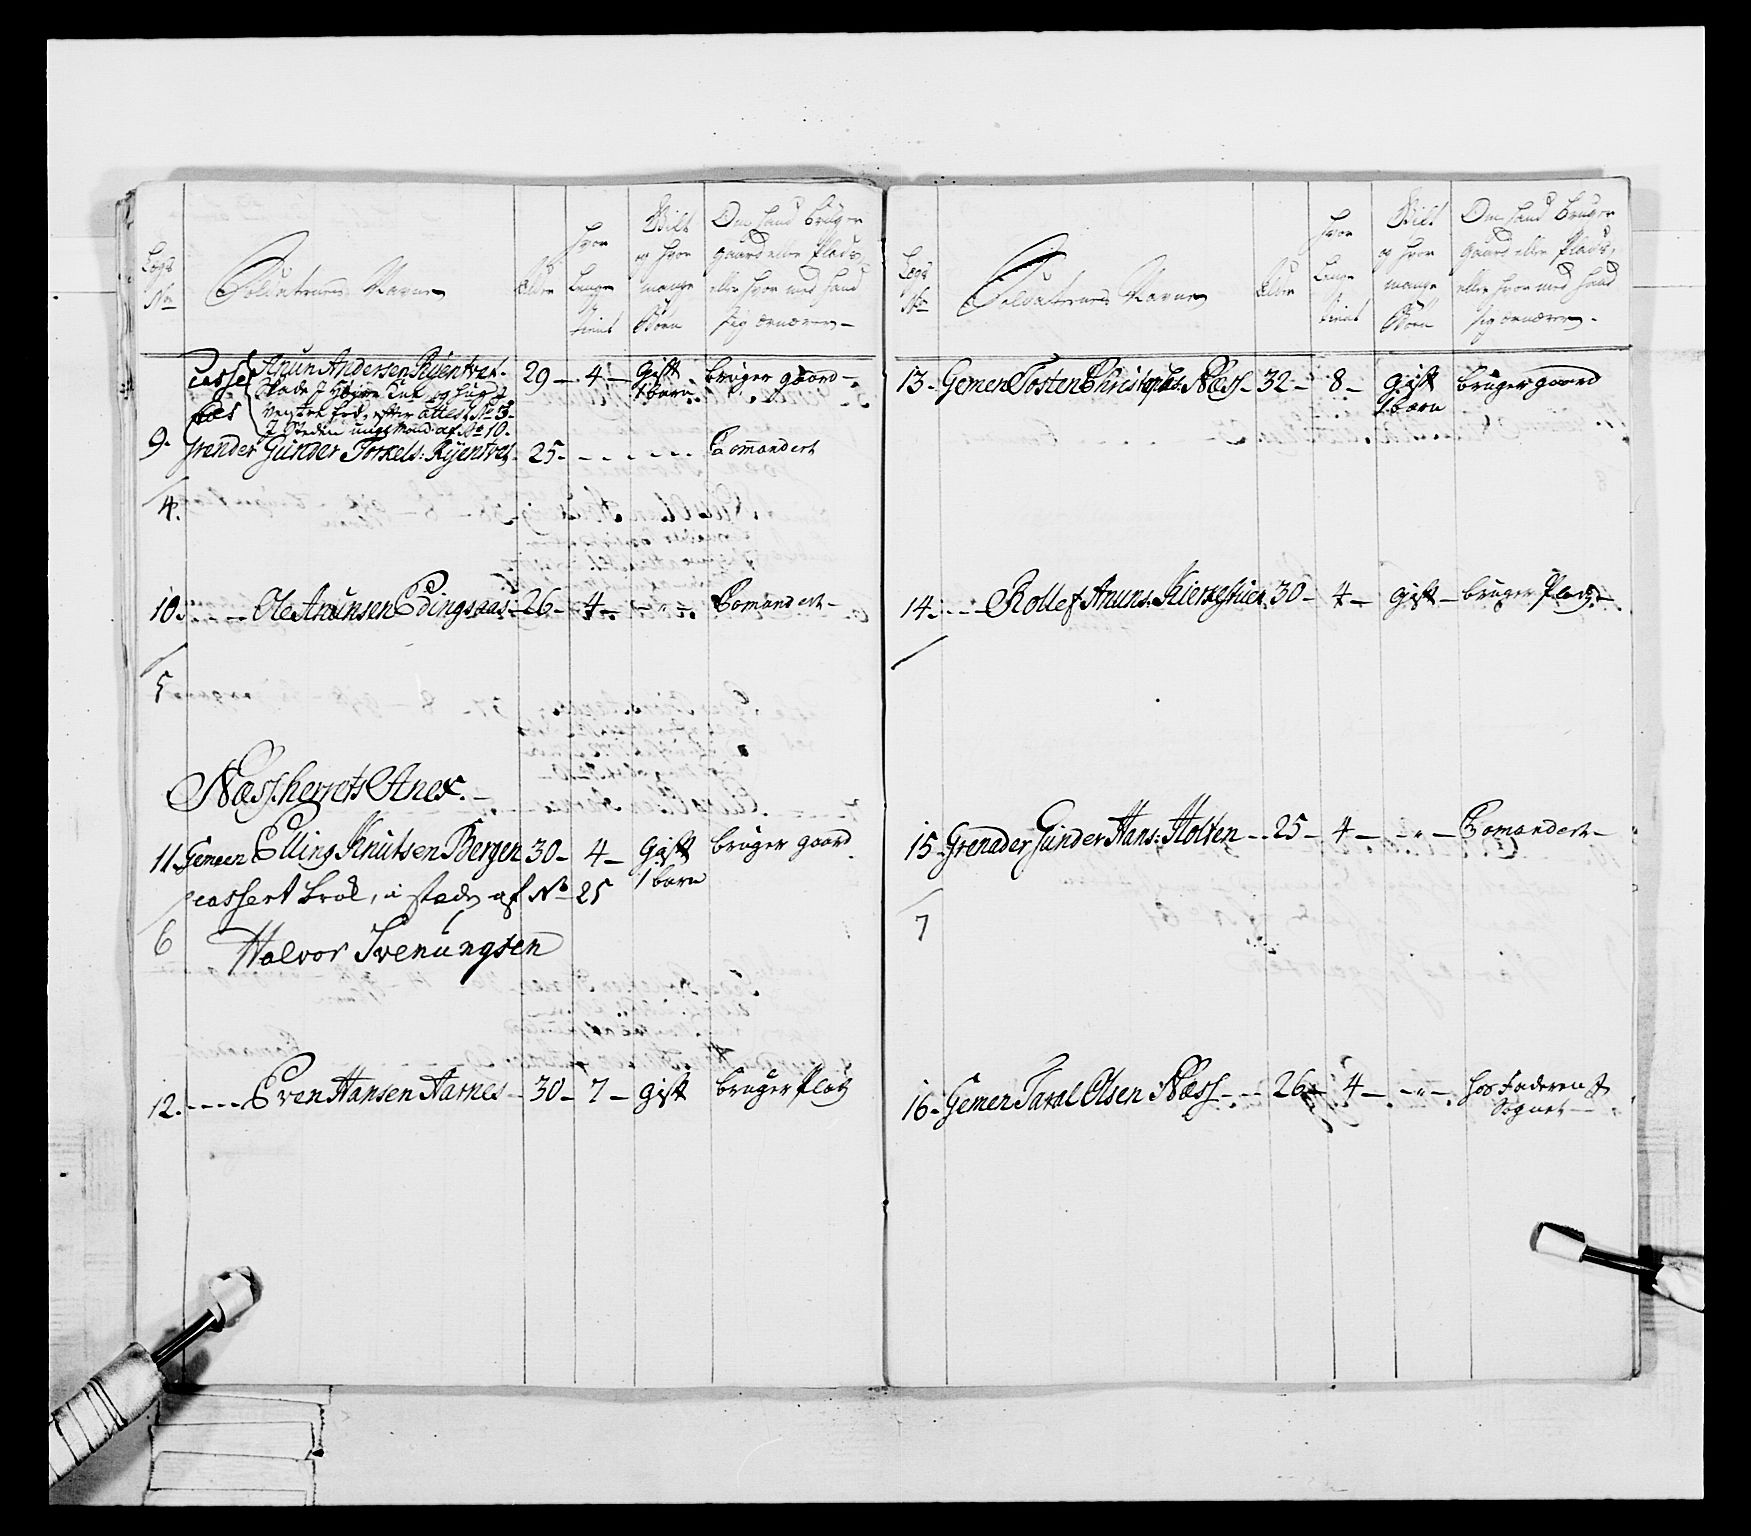 Legs No
Soldaternes Navne
Alder
Hvor Lenge tient
Gift og hvor mange Børn
Om hand bruger gaard eller Plads, eller hvor med hand sig ernærer
Casse- Anun Andersen Ryentvet. 29 - 4 - gift 1 barn bruger gaard -
Skade J høyre og hug J
venstre fod, efter attest, No 3.
J Steden ungemand af No 10.
9. Grender Gunder Torkels: Ryentvet 25 - Comandert
4.
10. Ole Anunsen Edingsaas 26 - 4 - " - Comandert -
5
Næssherrets Anex.
11. Gemeen Elling Knutsen Bergen 30 - 4 - gift 1 barn bruger gaard
cassert , i stæden af No 25
6 Halvor Svenungsen
12. Even Hansen Aarnes - 30 - 7 - gift bruger Platz
Legs No
Soldaternes Navne
Alder
Hvor Lenge tient
Gift og hvor mange Børn
Om hand bruger gaard eller Plads, eller hvor med hand sig ernærer -
13. Gemen Tosten Næss - 32 - 8 - gift 1 barn bruger gaard
14. Rollef Anuns: 30 - 4 - gift - bruger Platz -
15. Grenader Gunder Hans: Holten - 25 - 4 - " - Comandert -
7
16 - Gemen Taral Olsen Næss - 26 - 4 - " - hos Faderen J Sognet -